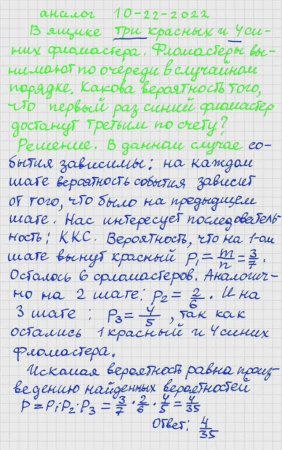 аналог 10-22-2022
В ящике три красных и 4 си-
них фломастера. Фломастеры вы-
нимают по очереди в случайном
порядке. Какова вероятность того,
что первый раз синий фломастер
достанут третьим по счету?
Решение. В данном случае со-
бытия зависимы; на каждом
шаге вероятность события зависит
от того, что было на предыдущем
шаге. Нас интересует последователь-
ность; ККС. Вероятность, что на 1-ом
шаге вынут красный P₁ = m/n = 3/7.
Осталось 6 фломастеров. Аналогич-
но на 2 шаге: P₂ = 2/6. И на
3 шаге: P₃ = 4/5, так как
остались 1 красный и 4 синих
фломастера.
Искамая вероятность равна произ-
ведению найденных вероятностей
P = P₁·P₂·P₃ = 3/7 · 2/6 · 4/5 = 4/35
Ответ: 4/35